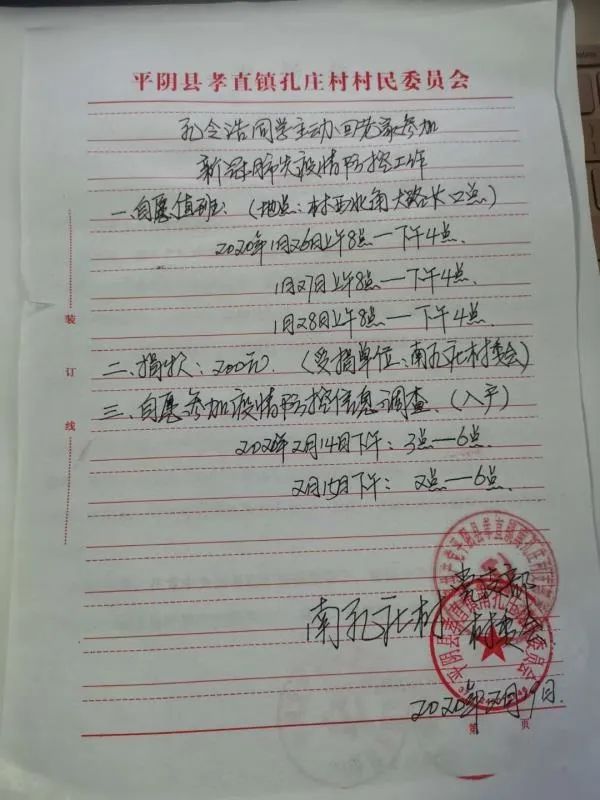 平阴县孝直镇孔庄村村民委员会
孔令浩同学主动回老家参加
新冠肺炎疫情防控工作
一、自愿值班：（地点：村西北角大路口点）
2020年1月26日上午8点—下午4点.
1月27日上午8点—下午4点.
1月28日上午8点—下午4点.
二、捐款：200元.（受捐单位：南孔庄村委会）
三、自愿参加疫情防控信息调查.（入户）
2020年2月14日下午：3点—6点.
2月15日下午：2点—6点.
装
订
线
党支部
南孔庄村 村委会
2020年2月 日.
第 页